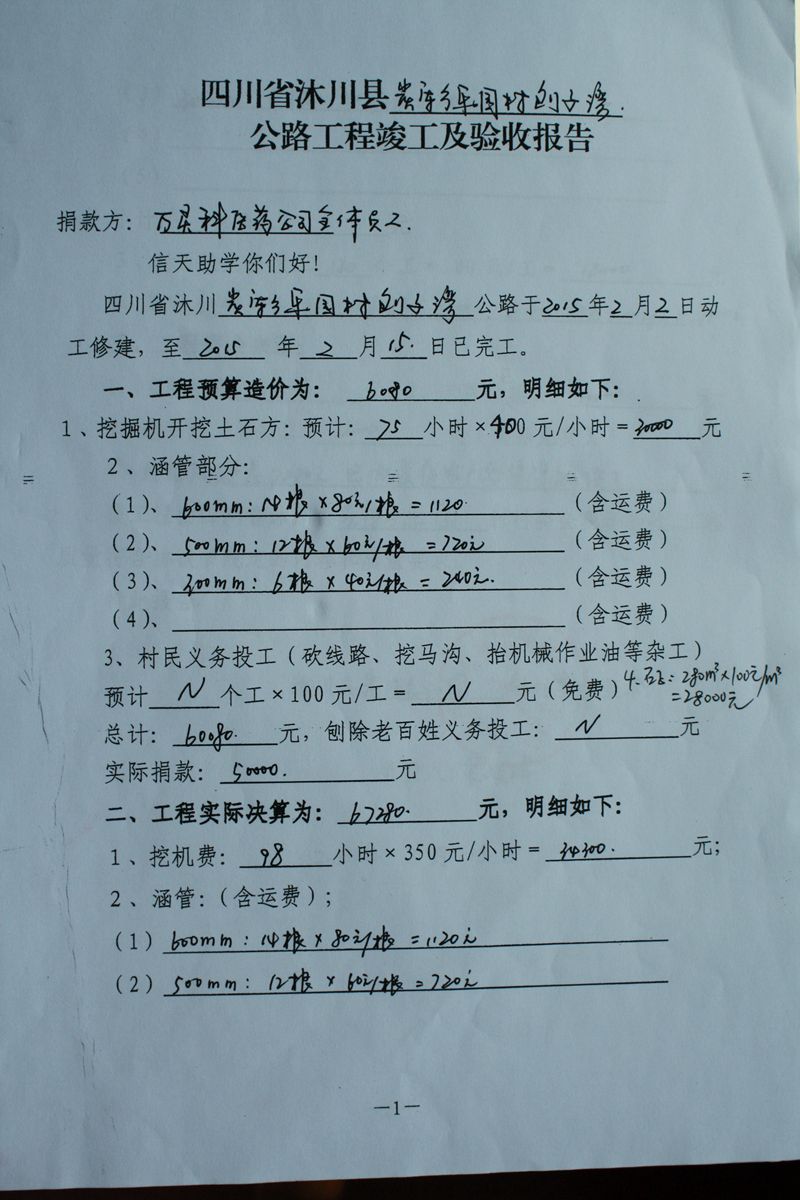 四川省沐川县黄丹乡军园村刘子湾.
公路工程竣工及验收报告
捐款方： 万灵科医药公司全体员工.
信天助学你们好！
四川省沐川黄丹乡军园村刘子湾公路于2015年2月2日动
工修建，至 2015 年 2 月 15. 日已完工。
一、工程预算造价为： 6080 元，明细如下：
1、挖掘机开挖土石方：预计： 75 小时×400元/小时＝30000元
2、涵管部分：
（1）、 600mm：14根×80元/根＝1120 （含运费）
（2）、 500mm：12根×60元/根＝720元 （含运费）
（3）、 300mm：6根×40元/根＝240元. （含运费）
（4）、 （含运费）
3、村民义务投工（砍线路、挖马沟、抬机械作业油等杂工）
预计 N 个工×100元/工＝ N 元（免费）
4. ：280m³×100元/m³
＝28000元
总计： 60080. 元，刨除老百姓义务投工： N 元
实际捐款： 50000. 元
二、工程实际决算为： 67280. 元，明细如下：
1、挖机费： 98 小时×350元/小时＝ 34300. 元；
2、涵管：（含运费）；
（1）600mm：14根×80元/根＝1120元
（2）500mm：12根×60元/根＝720元
—1—